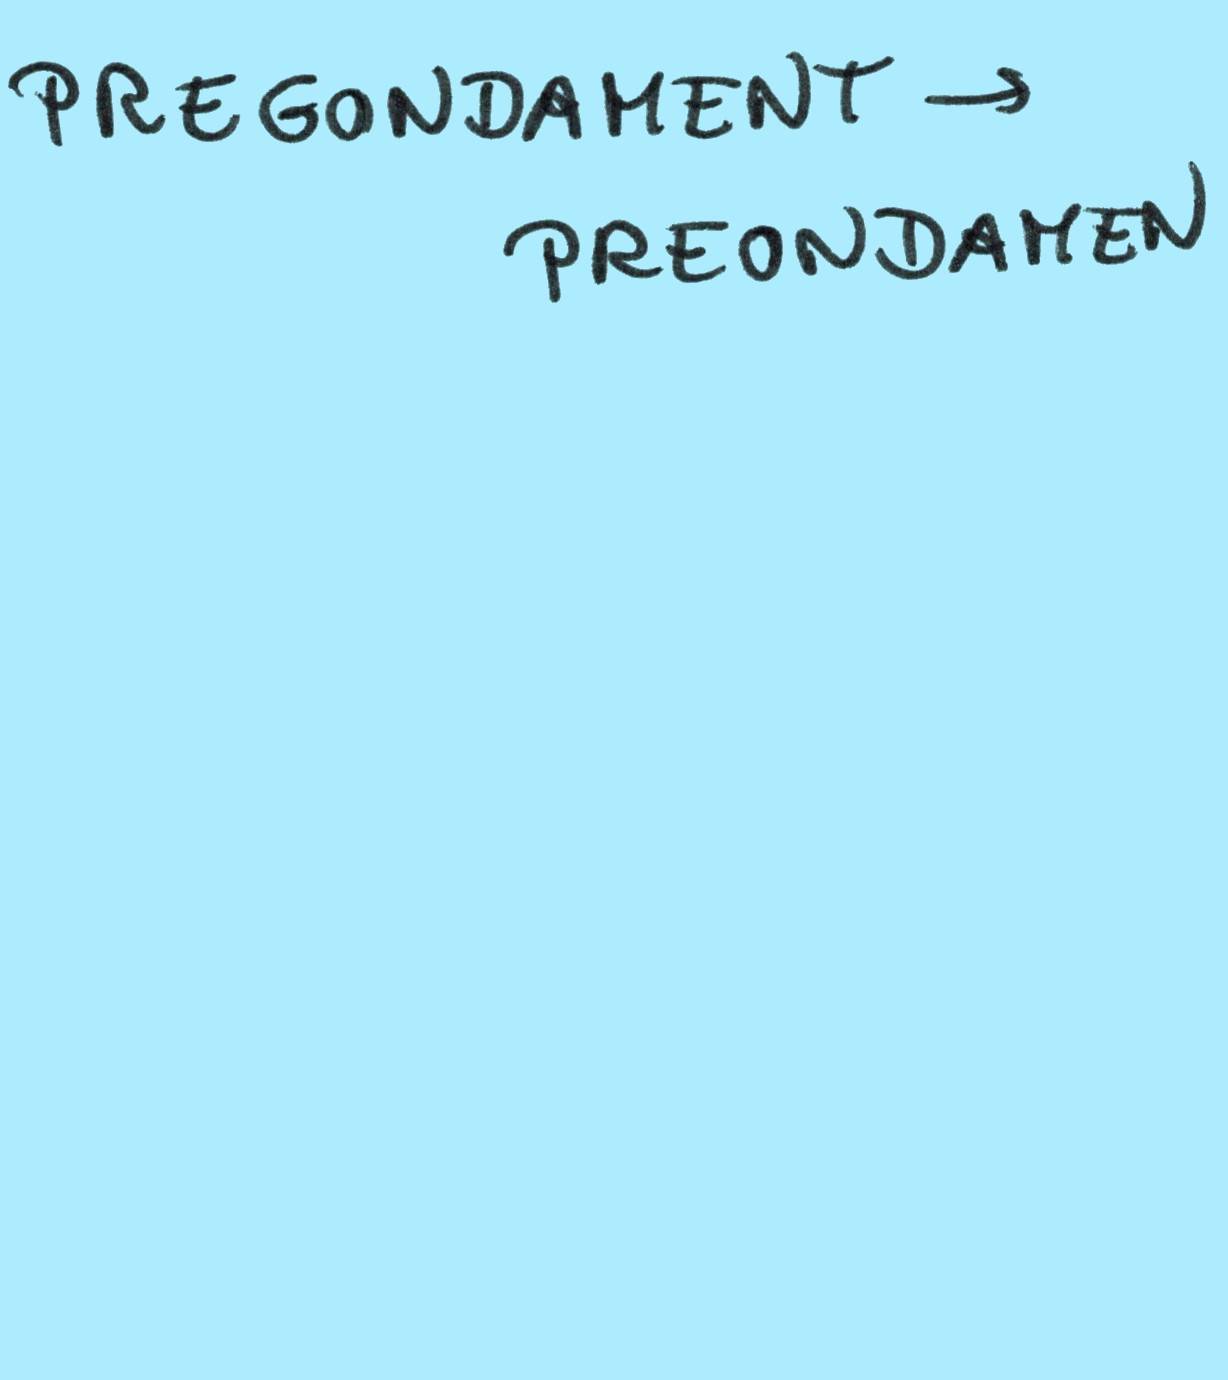 PREGONDAMENT →
PREONDAMEN